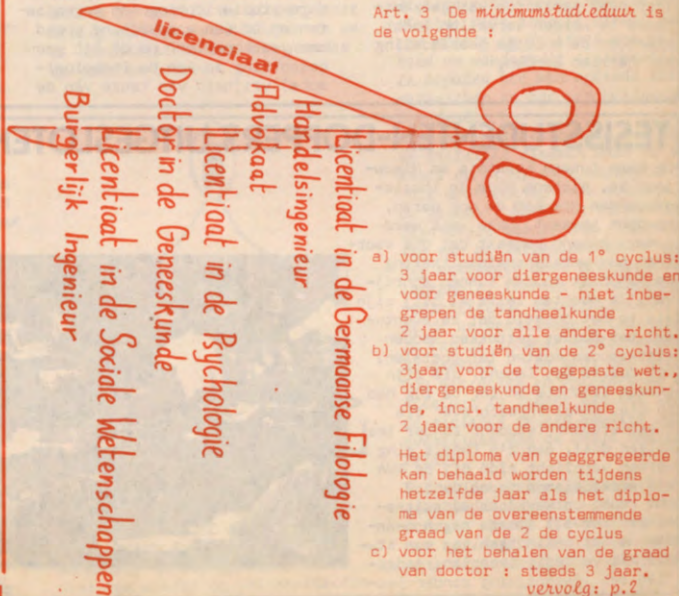 licenciaat
Licentiaat in de Germaanse Filologie
Handelsingenieur
Advokaat
Licentiaat in de Psychologie
Doctor in de Geneeskunde
Licentiaat in de Sociale Wetenschappen
Burgerlijk Ingenieur
Art. 3 De minimumstudieduur is
de volgende :
a) voor studiën van de 1° cyclus:
3 jaar voor diergeneeskunde en
voor geneeskunde - niet inbe-
grepen de tandheelkunde
2 jaar voor alle andere richt.
b) voor studiën van de 2° cyclus:
3jaar voor de toegepaste wet.,
diergeneeskunde en geneeskun-
de, incl. tandheelkunde
2 jaar voor de andere richt.
Het diploma van geaggregeerde
kan behaald worden tijdens
hetzelfde jaar als het diplo-
ma van de overeenstemmende
graad van de 2 de cyclus
c) voor het behalen van de graad
van doctor : steeds 3 jaar.
vervolg: p.2